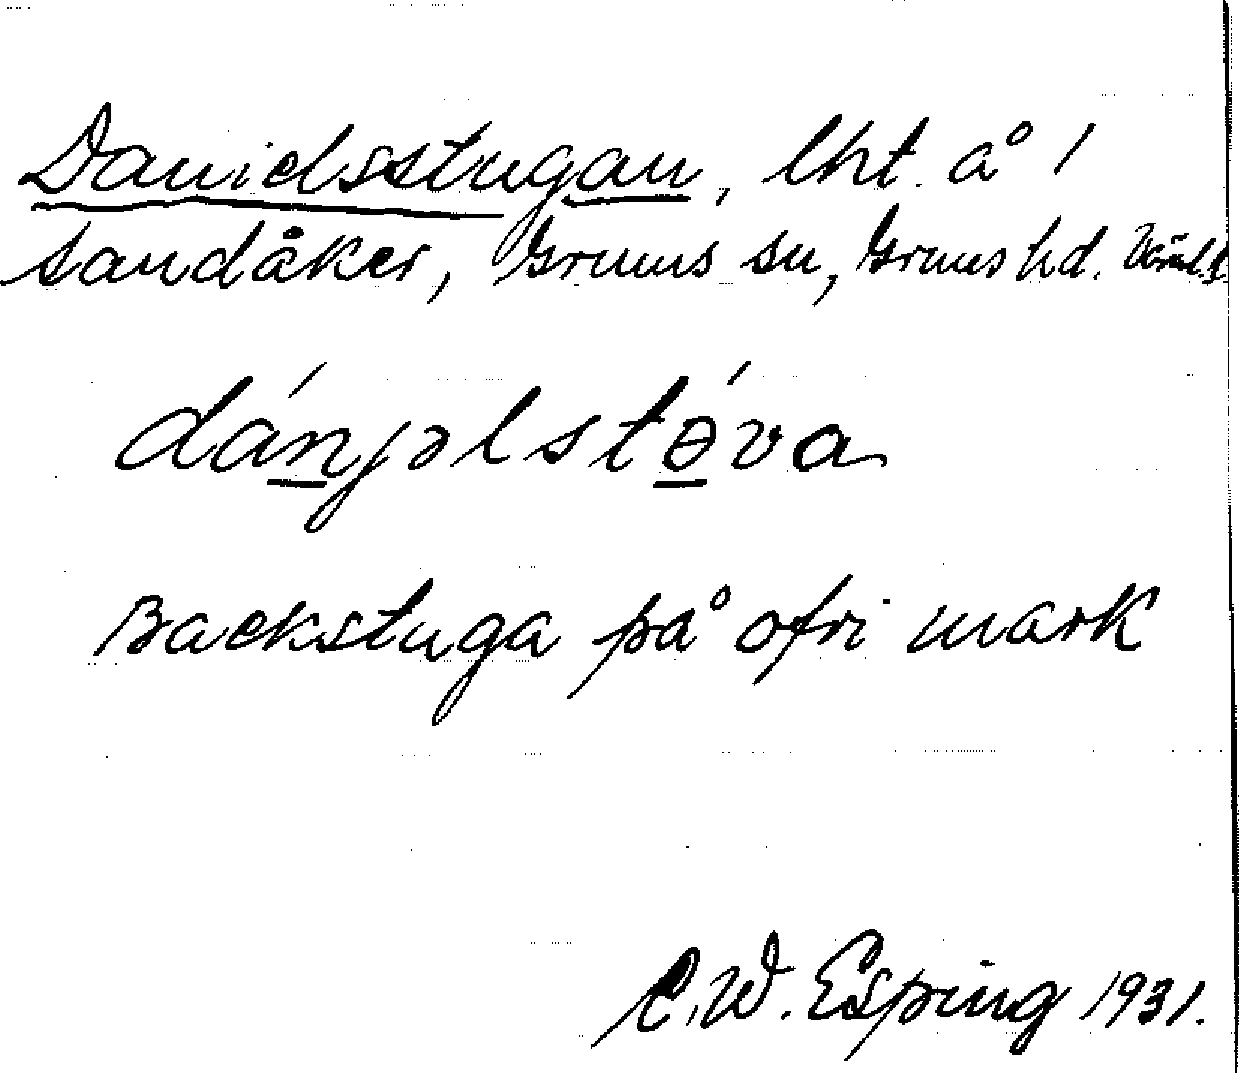 Danielsstugan, lht. å 1
Sandåker, Grums sn, Grums hd. Värml.
dánjəlstǿva
Backstuga på ofri mark
C. W. Esping 1931.